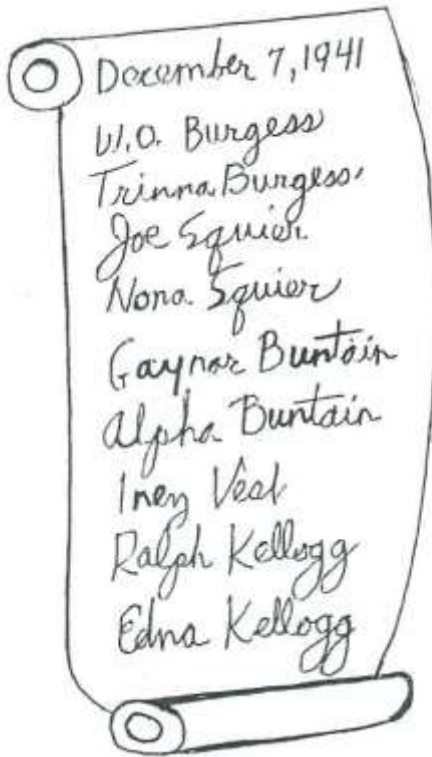 December 7, 1941
W.O. Burgess
Trinna Burgess
Joe Squier
Nona Squier
Gaynor Buntain
Alpha Buntain
Inez Vest
Ralph Kellogg
Edna Kellogg